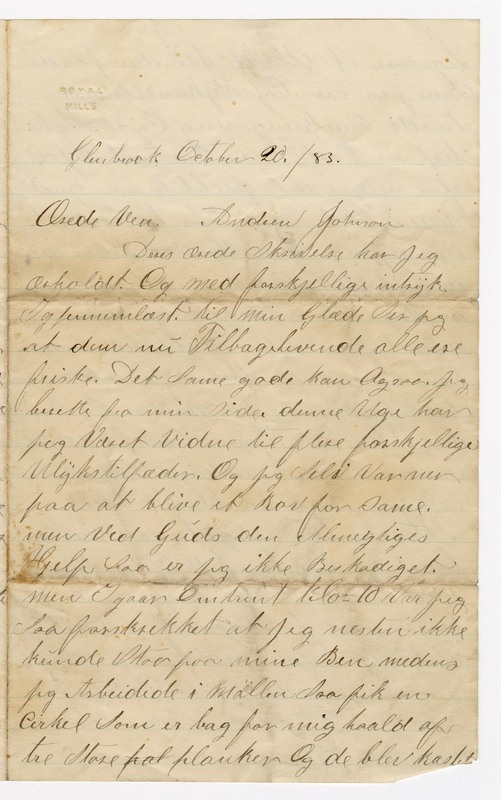 ROYAL
MILLS
Glenbrook October 20. /83.
Ærede Ven. Andrew Johnson
Deres ærede Skrivelse har jeg
erholdt. Og med forskjellige intryk
Igjennemlæst. til min Glæde Ser jeg
at dem nu Tilbagelevende alle ere
friske. Det Same gode kan Ogsaa jeg
berette fra min Side. denne Uge har
jeg Været Vidne til flere forskjellige
Ulykstilfæder. Og jeg Selv var nær
paa at blive et Rov for Same.
men Ved Guds den Almegtiges
Hjelp Saa er jeg ikke Beskadiget.
men Igaar Omtrent Klo= 10 Var jeg
Saa forskrekket at jeg nesten ikke
kunde Staa paa mine Ben medens
jeg Arbeidede i Möllen Saa fik en
Cirkel Som er bag for mig haald af
tre Store planker Og de blev kastet